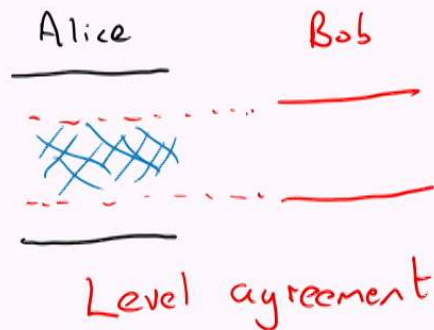 Alice Bob
Level agreement